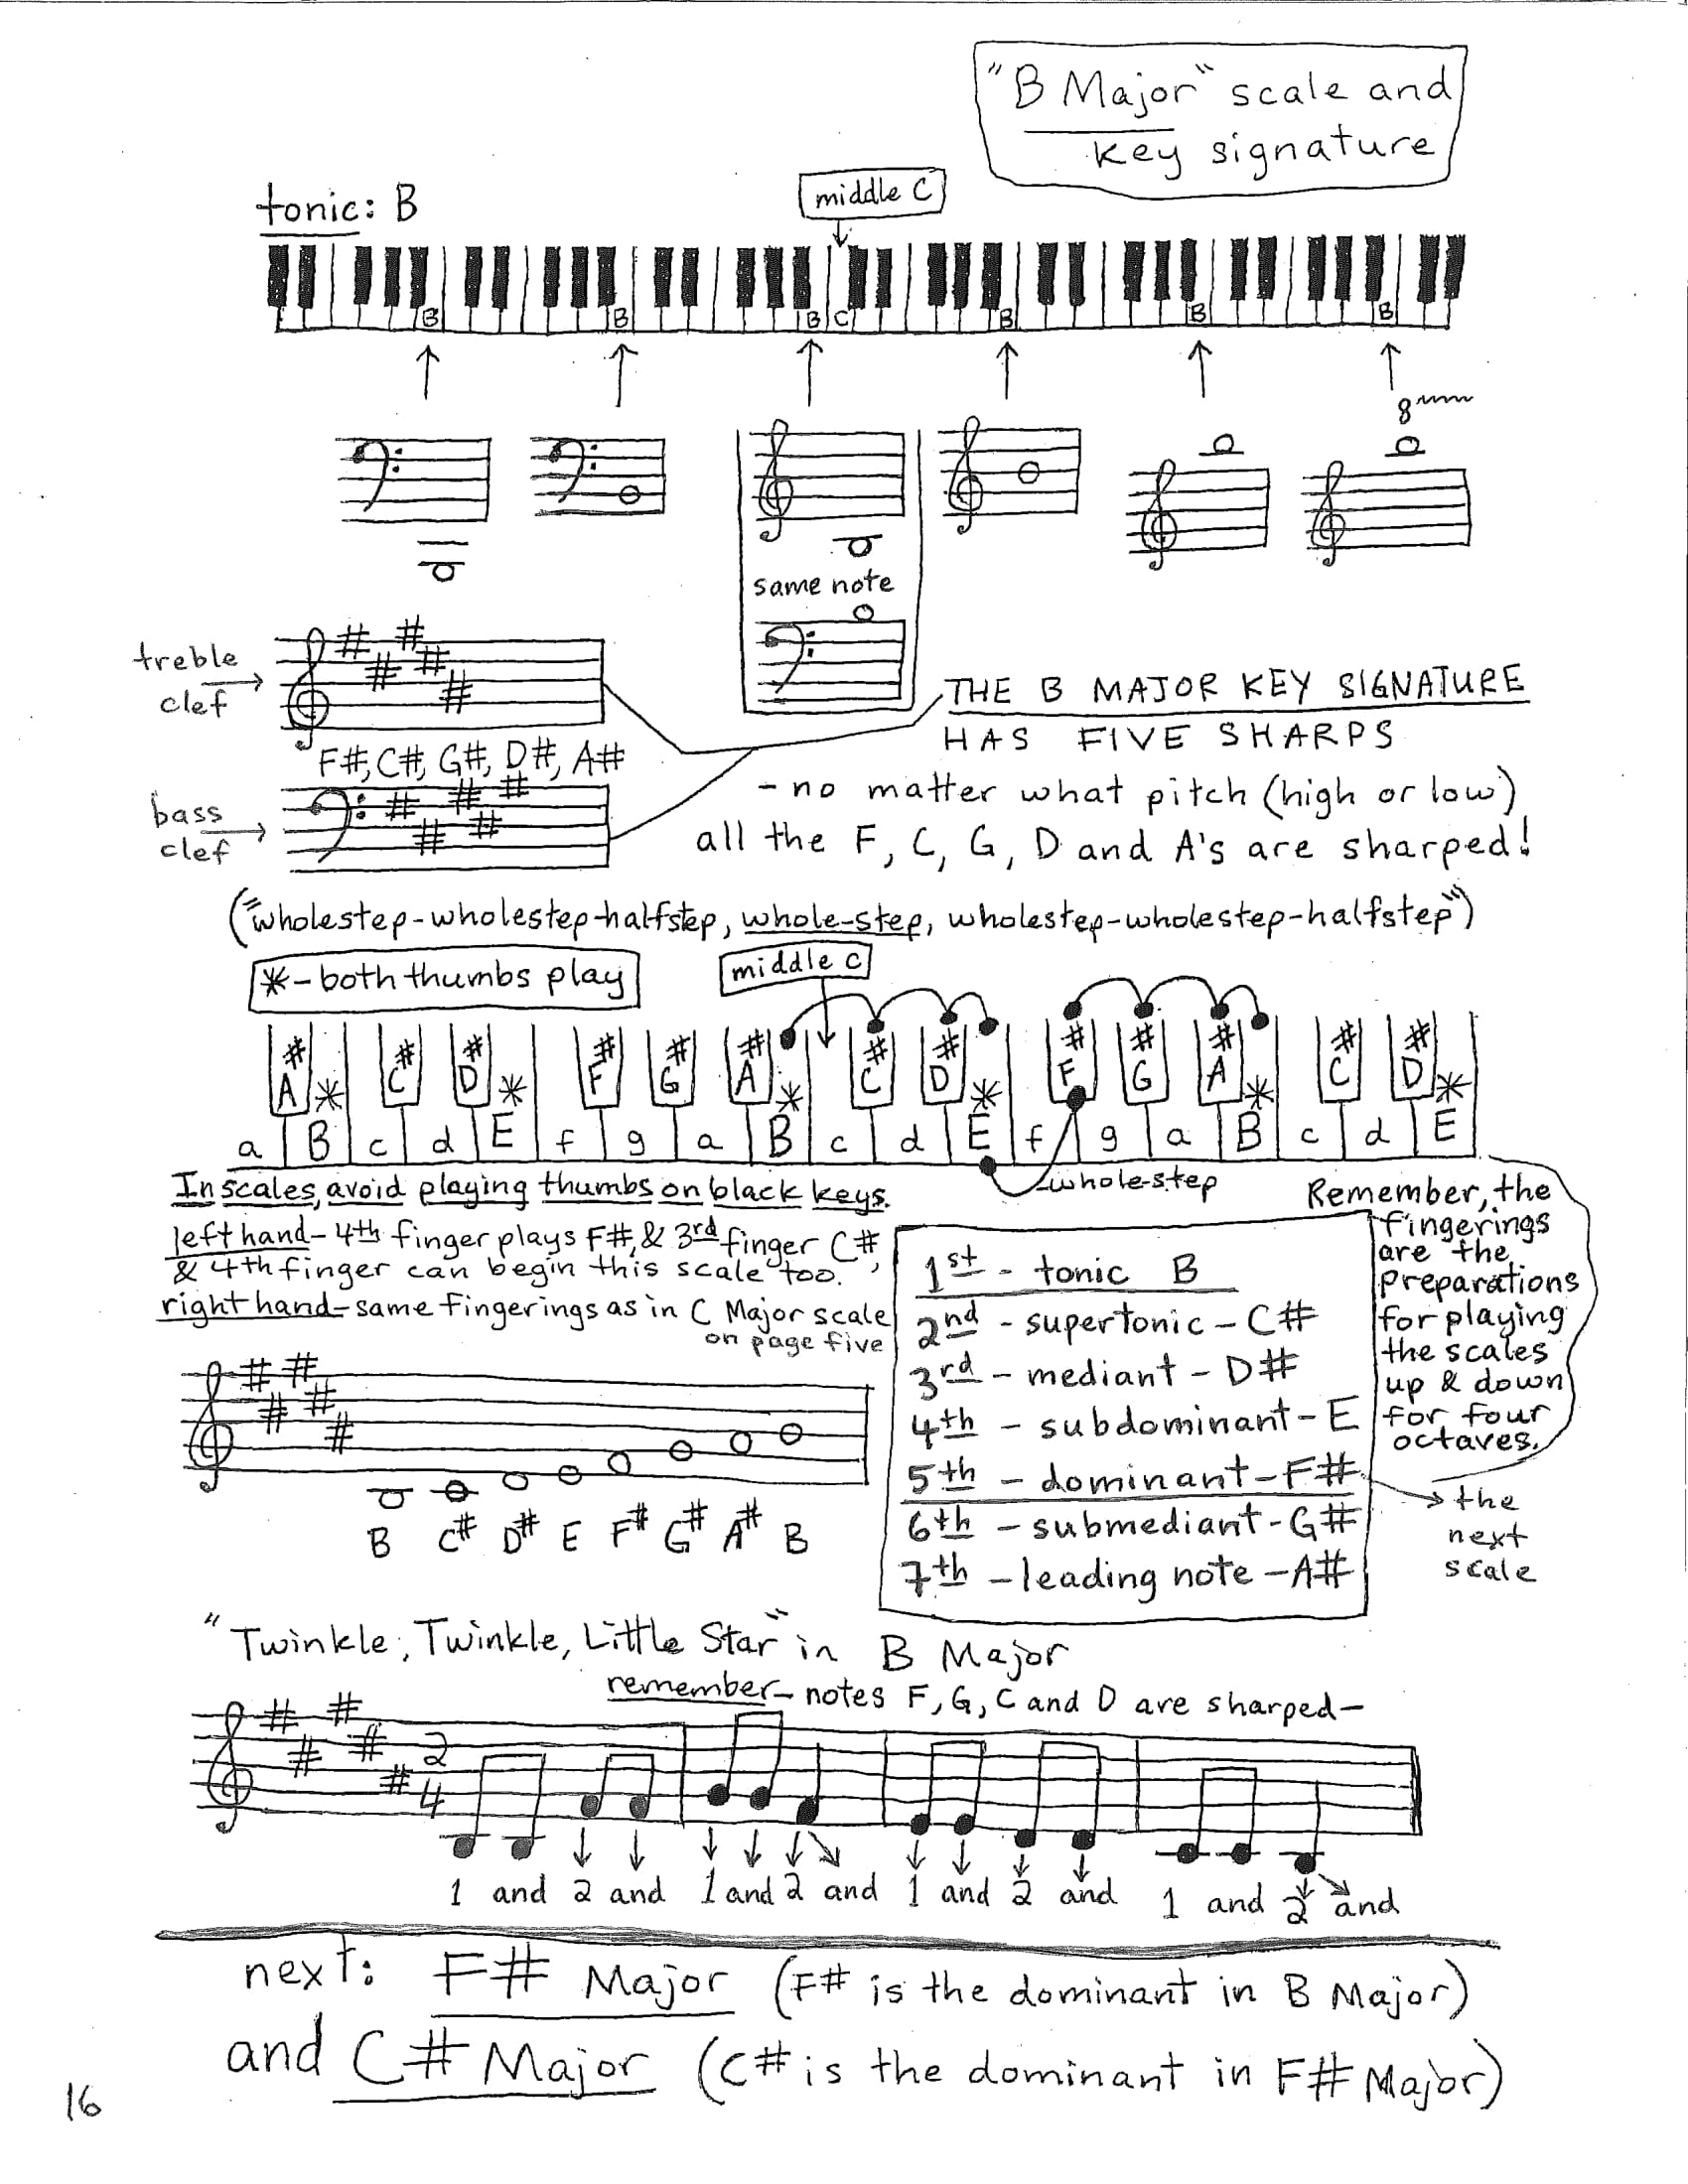 "B Major" scale and
key signature
middle C
tonic: B
B B B C B B B
8
same note
treble
clef
F#, C#, G#, D#, A#
bass
clef
THE B MAJOR KEY SIGNATURE
HAS FIVE SHARPS
- no matter what pitch (high or low)
all the F, C, G, D and A's are sharped!
("wholestep-wholestep-halfstep, whole-step, wholestep-wholestep-halfstep")
*- both thumbs play
middle C
A# C# D# F# G# A# C# D# F# G# A# C# D#
* * * * * *
a B c d E f g a B c d E f g a B c d E
whole-step
In scales, avoid playing thumbs on black keys.
left hand- 4th finger plays F#, & 3rd finger C#,
& 4th finger can begin this scale too.
right hand- same fingerings as in C Major scale
on page five
1st - tonic B
2nd - supertonic - C#
3rd - mediant - D#
4th - subdominant - E
5th - dominant - F#
6th - submediant - G#
7th - leading note - A#
Remember, the
fingerings
are the
preparations
for playing
the scales
up & down
for four
octaves.
the
next
scale
B C# D# E F# G# A# B
"Twinkle, Twinkle, Little Star" in B Major
remember- notes F, G, C and D are sharped-
2
4
1 and 2 and 1 and 2 and 1 and 2 and 1 and 2 and
next: F# Major (F# is the dominant in B Major)
and C# Major (C# is the dominant in F# Major)
16